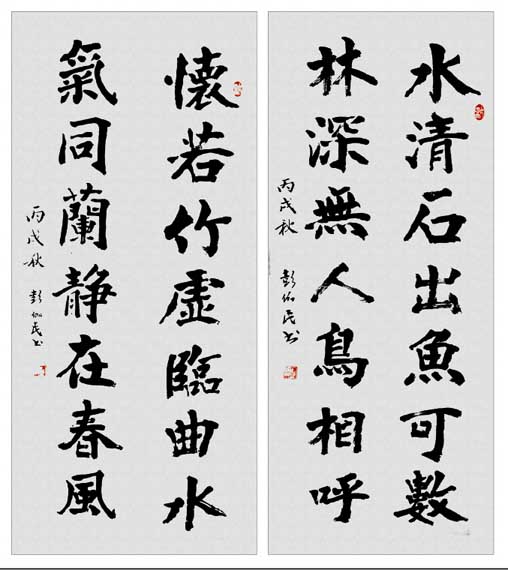 水清石出魚可數
林深無人鳥相呼
丙戌秋 彭民书
懷若竹虛臨曲水
氣同蘭静在春風
丙戌秋 彭民书